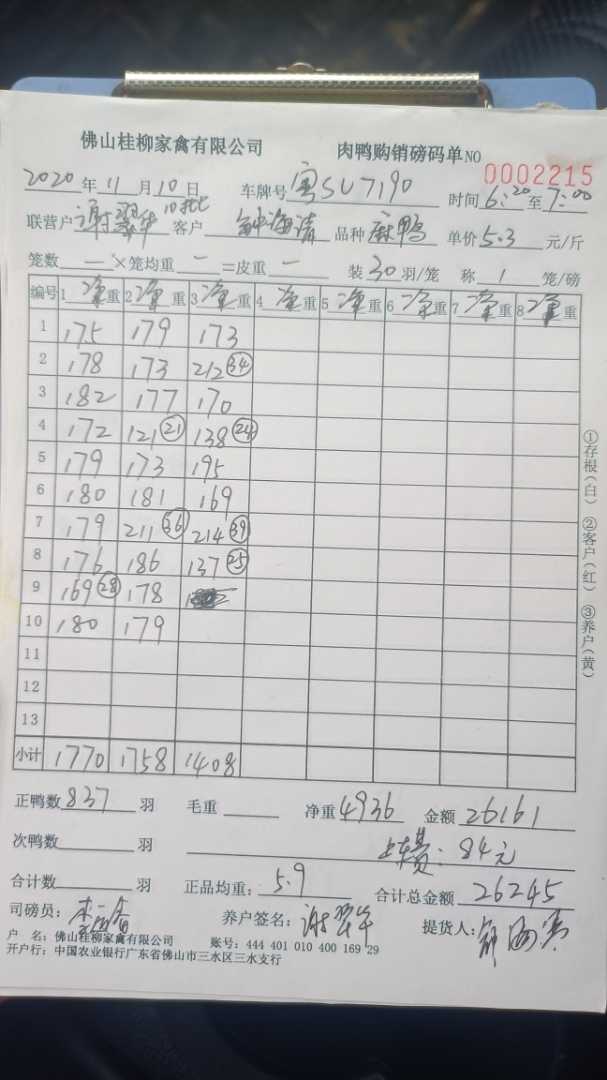 佛山桂柳家禽有限公司 肉鸭购销磅码单 NO 0002215
2020 年 11 月 10 日 车牌号 粤SU7190 时间 6:20 至 7:00
联营户 谢翠华 10批 客户 钟海清 品种 麻鸭 单价 5.3 元/斤
笼数 — ×笼均重 — =皮重 — 装 30 羽/笼 称 1 笼/磅
编号 1 净重 2 净重 3 净重 4 净重 5 净重 6 净重 7 净重 8 净重
1 175 179 173
2 178 173 212 (34)
3 182 177 170
4 172 121 (21) 138 (24)
5 179 173 195
6 180 181 169
7 179 211 (36) 214 (39)
8 176 186 137 (25)
9 169 (28) 178
10 180 179
11
12
13
小计 1770 1758 1408
①存根(白) ②客户(红) ③养户(黄)
正鸭数 837 羽 毛重 净重 4936 金额 26161
次鸭数 羽 上车费: 84元
合计数 羽 正品均重: 5.9 合计总金额 26245
司磅员: 养户签名: 谢翠华 提货人:
户 名: 佛山桂柳家禽有限公司 账号: 444 401 010 400 169 29
开户行: 中国农业银行广东省佛山市三水区三水支行